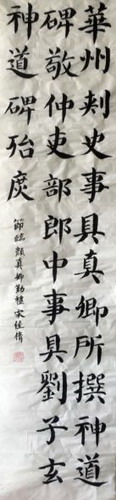 華州刾史事具真卿所撰神道
碑敬仲吏部郎中事具劉子玄
神道碑殆庶
節臨顏真卿勤禮